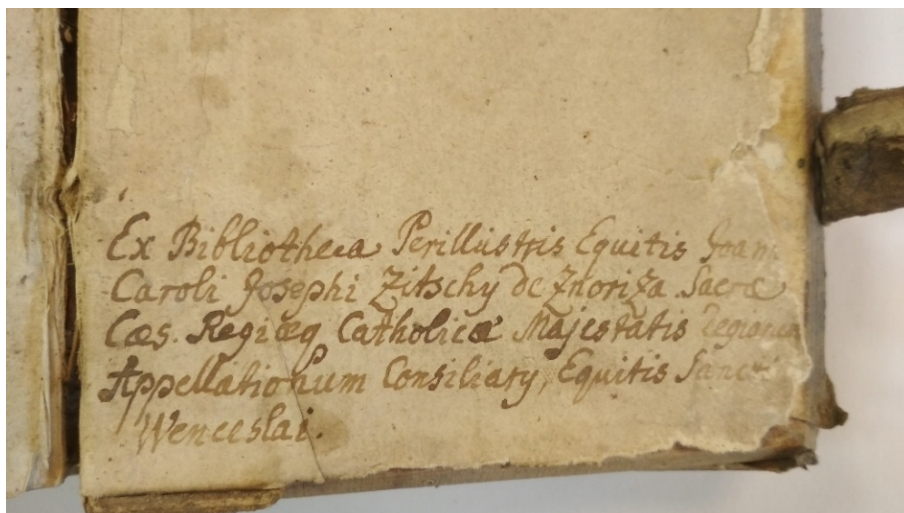 Ex Bibliotheca Perillustris Equitis Joan
Caroli Josephi Zitschy de Znoriza Sacræ
Cæs. Regiæq Catholicæ Majestatis
Appellationum Consiliary, Equitis Sancti
Wenceslai.